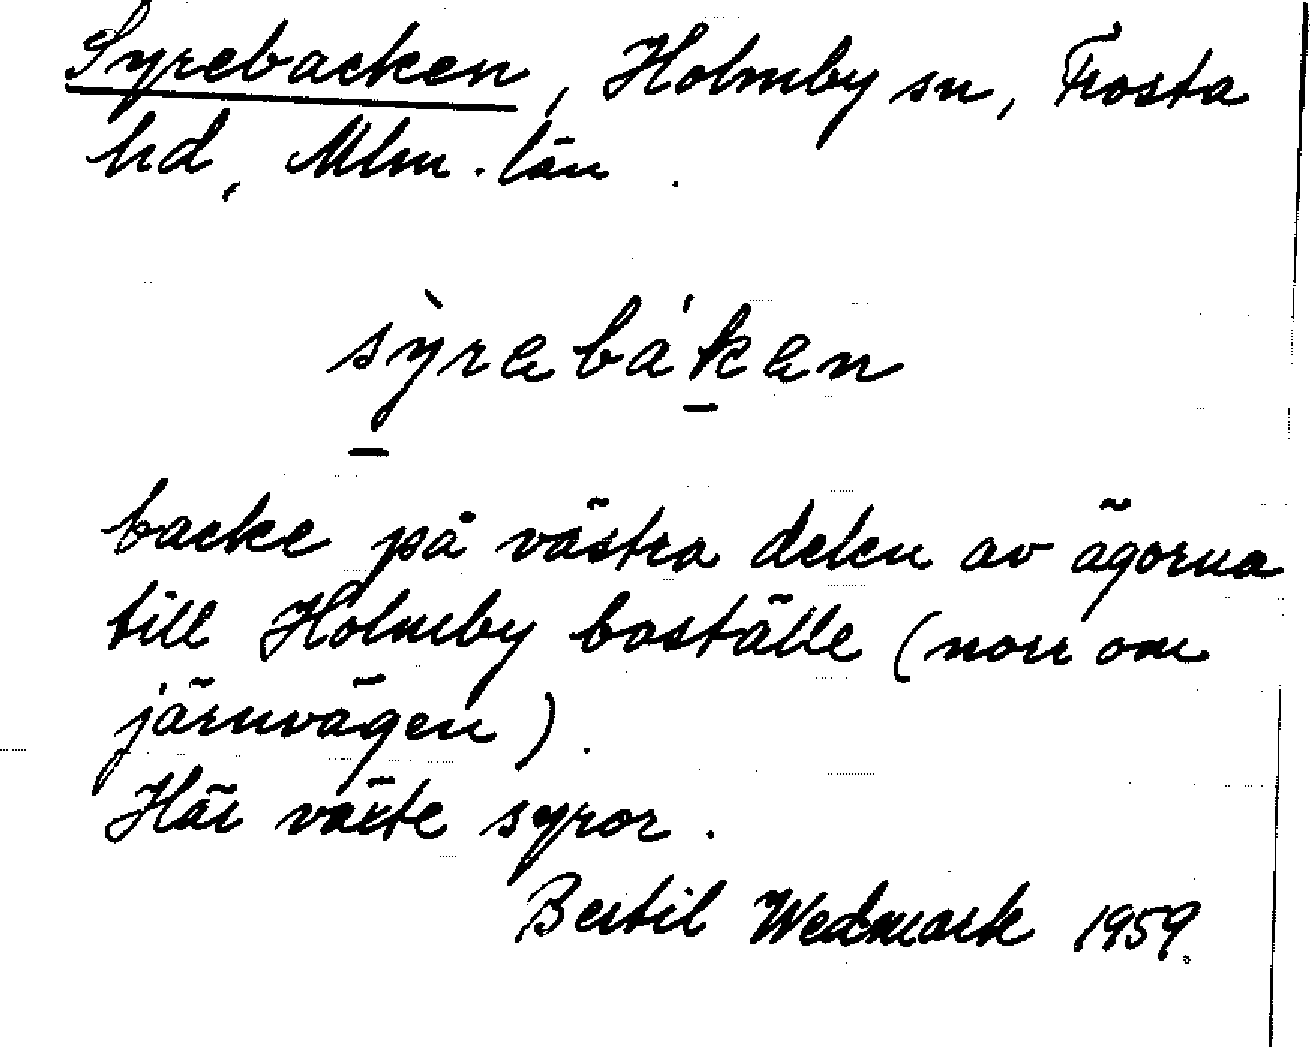 Syrebacken, Holmby sn, Frosta
hd, Mlm. län.
sỳrebáken
backe på västra delen av ägorna
till Holmby boställe (norr om
järnvägen).
Här växte syror.
Bertil Wedmark 1959.